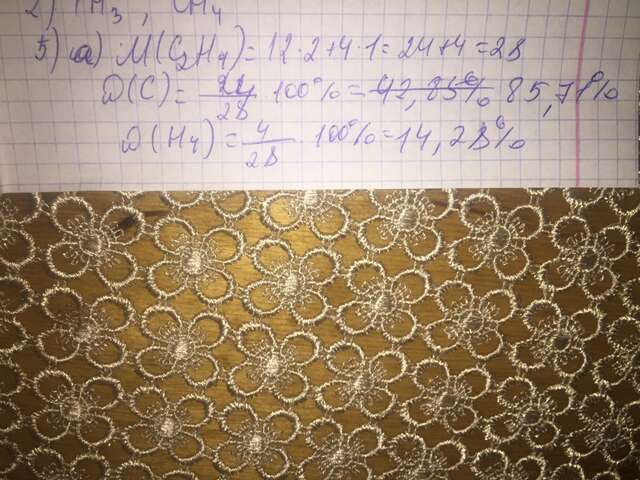 2) PH₃, CH₄
5) a) M(C₂H₄) = 12·2+4·1 = 24+4 = 28
ω(C) = 24/28 100% = 42,85% 85,71%
ω(H₄) = 4/28 100% = 14,28%